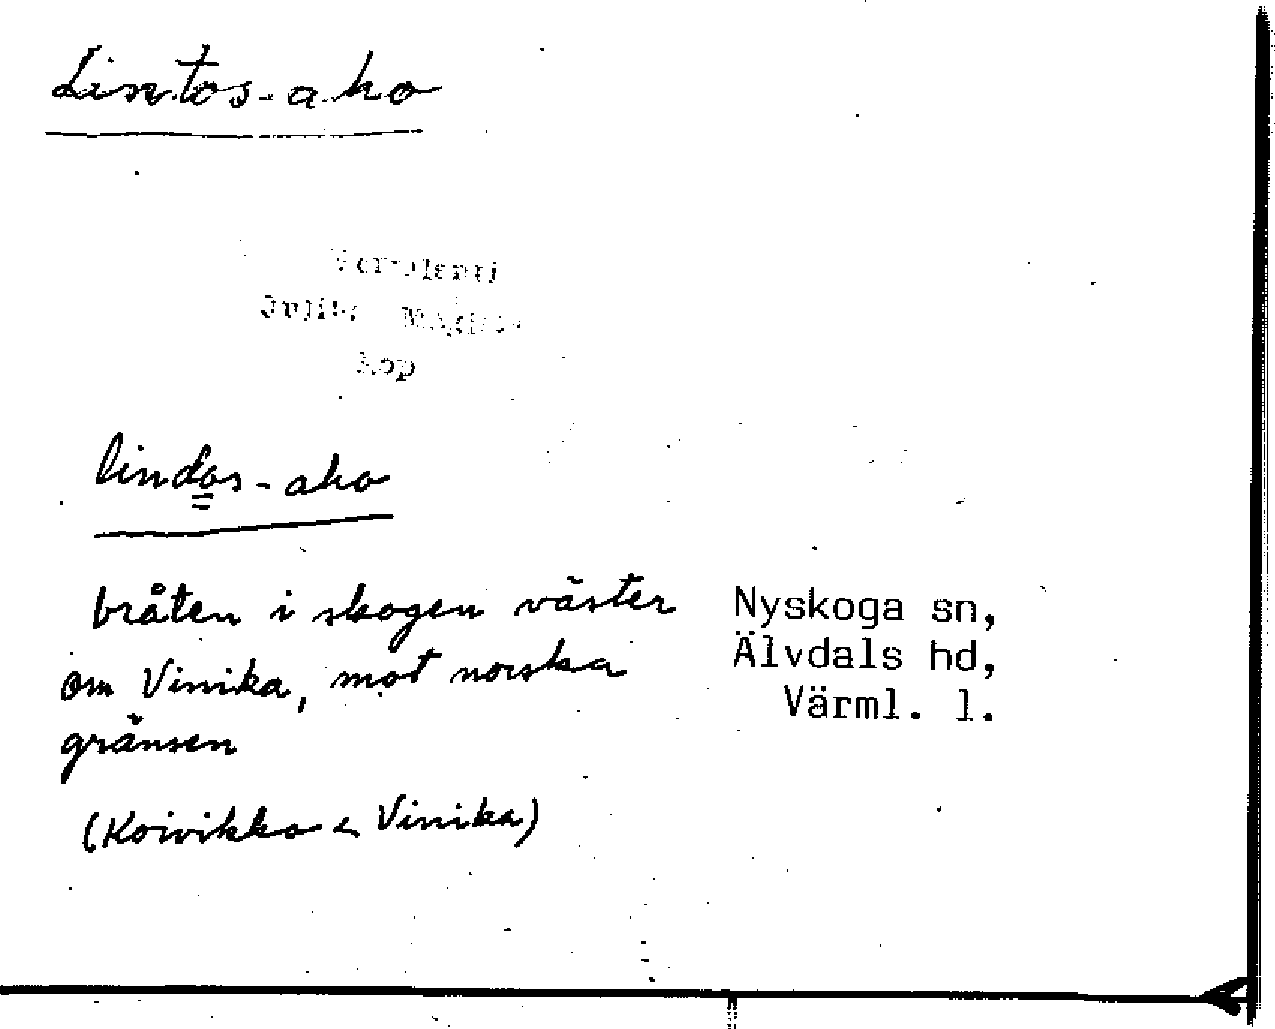 Lintos-aho
Vermlanti
Julius Mägiste
kop
lindos-aho
bråten i skogen väster
om Vinika, mot norska
gränsen
(Koivikko < Vinika)
Nyskoga sn,
Älvdals hd,
Värml. l.